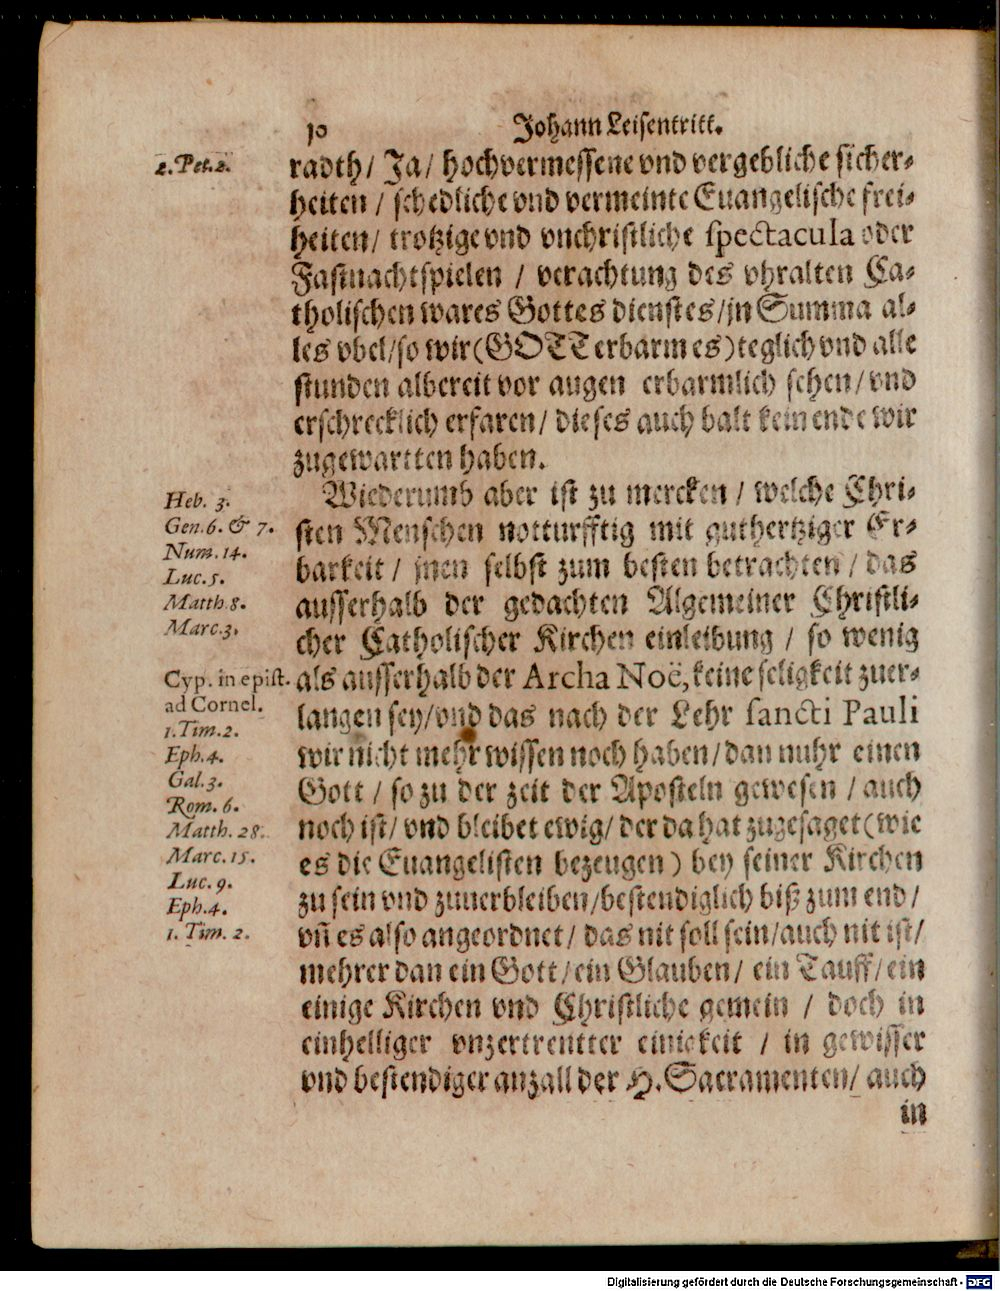 10
Johann Leisentritt.
2. Pet. 2.
radth/ Ja/ hochvermessene vnd vergebliche sicher-
heiten / schedliche vnd vermeinte Euangelische frei-
heiten/ trotzige vnd vnchristliche spectacula oder
Fastnachtspielen / verachtung des vhralten Ca-
tholischen wares Gottes dienstes/jn Summa al-
les vbel/so wir(GOTT erbarm es)teglich vnd alle
stunden albereit vor augen erbarmlich sehen/vnd
erschrecklich erfaren/ dieses auch balt kein ende wir
zugewartten haben.
Heb. 3.
Gen. 6. & 7.
Num. 14.
Luc. 5.
Matth 8.
Marc. 3.
Cyp. in epist.
ad Cornel.
1. Tim. 2.
Eph. 4.
Gal. 3.
Rom. 6.
Matth. 28.
Marc. 15.
Luc. 9.
Eph. 4.
1. Tim. 2.
Wiederumb aber ist zu mercken / welche Chri-
sten Menschen notturfftig mit guthertziger Er-
barkeit / jnen selbst zum besten betrachten / das
ausserhalb der gedachten Algemeiner Christli-
cher Catholischer Kirchen einleibung / so wenig
als ausserhalb der Archa Noë, keine seligkeit zuer-
langen sey/vnd das nach der Lehr sancti Pauli
wir nicht mehr wissen noch haben/dan nuhr einen
Gott / so zu der zeit der Aposteln gewesen / auch
noch ist/ vnd bleibet ewig/ der da hat zugesaget(wie
es die Euangelisten bezeugen) bey seiner Kirchen
zu sein vnd zuuerbleiben/bestendiglich biß zum end/
vñ es also angeordnet/ das nit soll sein/auch nit ist/
mehrer dan ein Gott/ein Glauben/ ein Tauff/ein
einige Kirchen vnd Christliche gemein / doch in
einhelliger vnzertrentter einickeit / in gewisser
vnd bestendiger anzall der H. Sacramenten/ auch
in
Digitalisierung gefördert durch die Deutsche Forschungsgemeinschaft - DFG